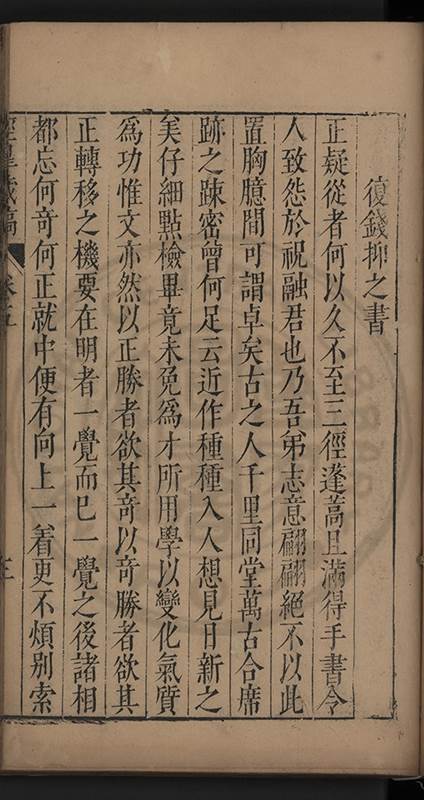 復錢抑之書
正疑從者何以久不至三徑蓬蒿且滿得手書令
人致怨於祝融君也乃吾弟志意翩翩絕不以此
置胸臆間可謂卓矣古之人千里同堂萬古合席
跡之踈密曾何足云近作種種入人想見日新之
美仔細點檢畢竟未免為才所用學以變化氣質
為功惟文亦然以正勝者欲其奇以奇勝者欲其
正轉移之機要在明者一覺而已一覺之後諸相
都忘何奇何正就中便有向上一着更不煩別索
涇臯藏稿 卷五